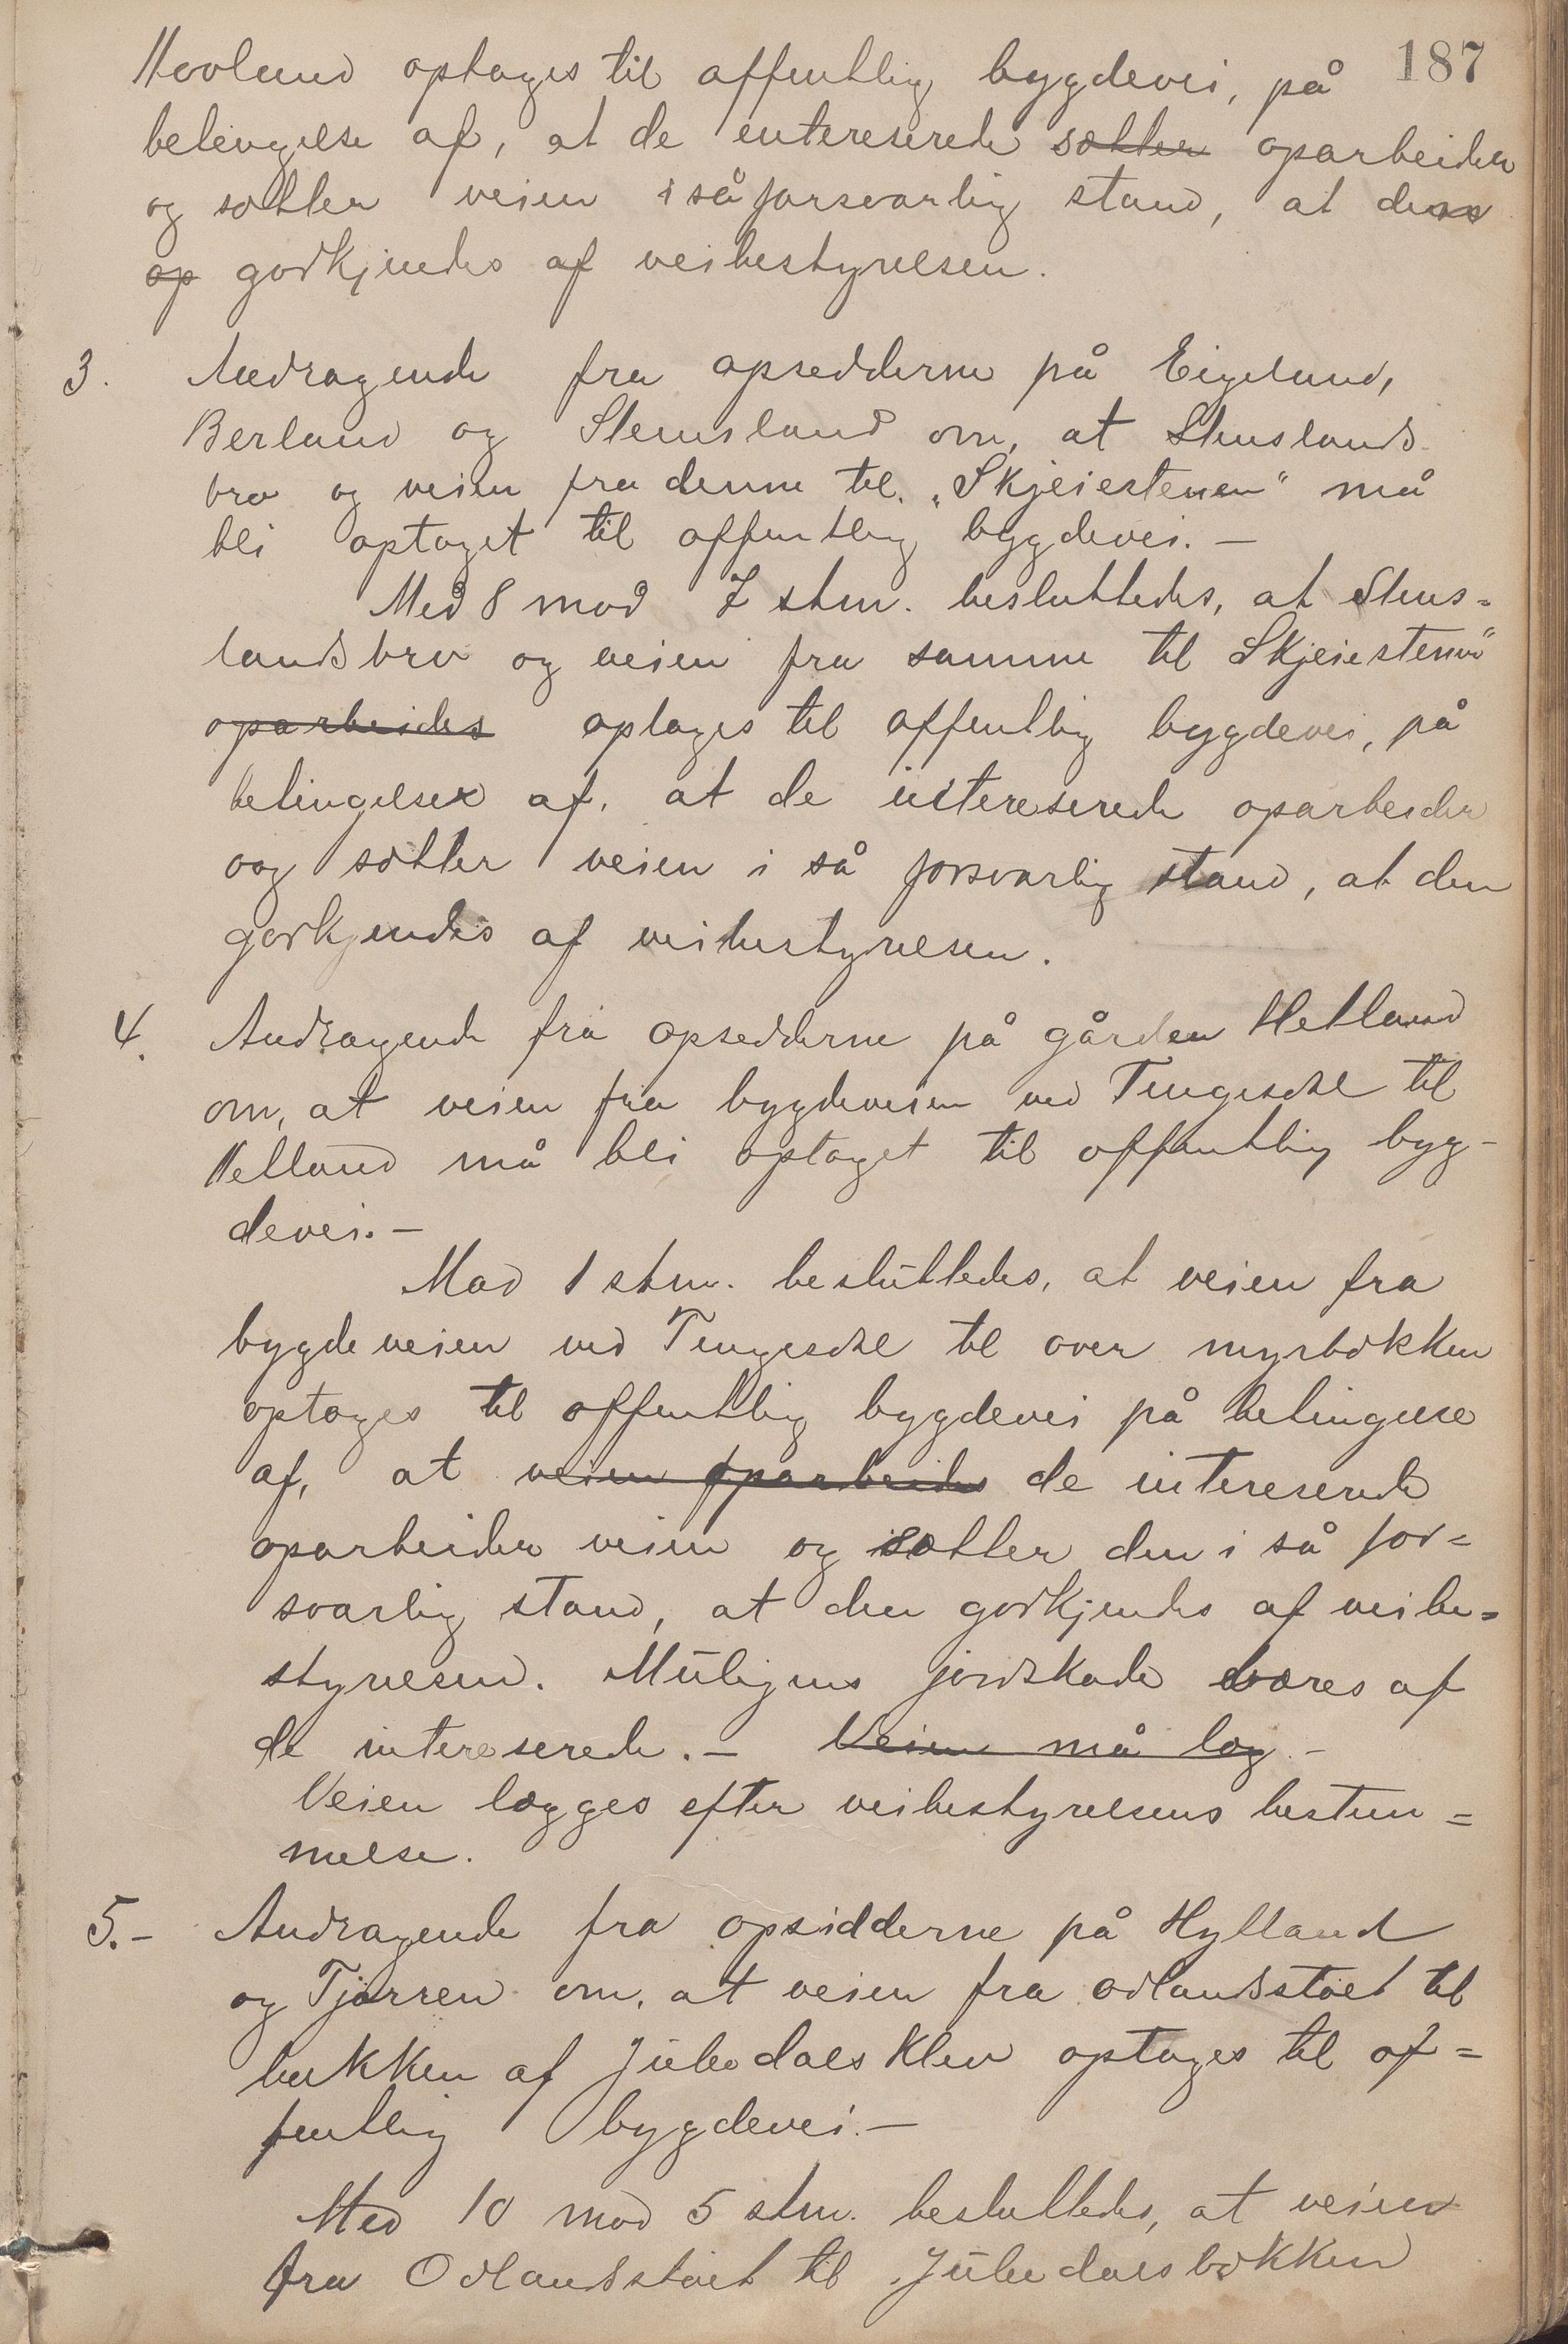 187
Hovland optages til offentlig bygdevei, på
betingelse af, at de intereserede sætter oparbeider
og sætter veien i så forsvarlig stand, at den
op godkjendes af veibestyrelsen.
3. Andragende fra opsedderne på Eigeland,
Berland og Stensland om, at Stenslands
bro og veien fra denne til „Skjeiestenen" må
bli optaget til offentlig bygdevei. —
Med 8 mod 7 stm. besluttedes, at Stens=
landsbro og veien fra samme til Skjeiestenen"
oparbeides optages til offentlig bygdevei, på
betingelse af, at de intereserede oparbeider
og sætter veien i så forsvarlig stand, at den
godkjendes af veibestyrelsen.
4. Andragende fra opsedderne på gården Hetland
om, at veien fra bygdeveien ved Tengesdal til
Hetland må bli optaget til offentlig byg-
devei. —
Mod 1 stm. besluttedes, at veien fra
bygdeveien ved Tengesdal til over myrbækken
optages til offentlig bygdevei på betingelse
af, at veien oparbeides de intereserede
oparbeider veien og sætter den i så for=
svarlig stand, at den godkjendes af veibe=
styrelsen. Muligens jordskade bæres af
de intereserede. — Veien må læg —
Veien lægges efter veibestyrelsens bestem=
melse.
5. — Andragende fra opsidderne på Hylland
og Tjørren om, at veien fra Odlandsstøet til
bækken af Juledalskleiv optages til of=
fentlig bygdevei. —
Med 10 mod 5 stm. besluttedes, at veien
fra Odlandsstøet til Juledalsbækken